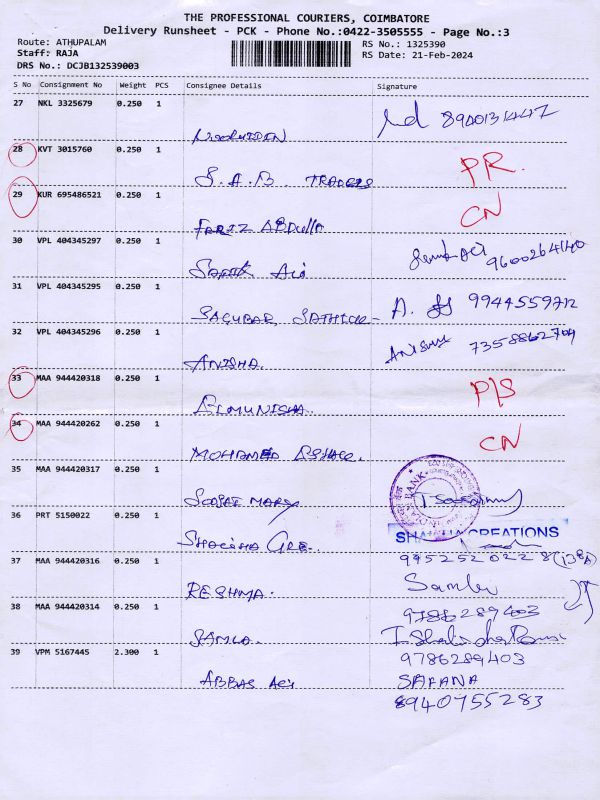 THE PROFESSIONAL COURIERS, COIMBATORE
Delivery Runsheet - PCK - Phone No.:0422-3505555 - Page No.:3
Route: ATHUPALAM
Staff: RAJA
DRS No.: DCJB132539003
RS No.: 1325390
RS Date: 21-Feb-2024
S No Consignment No Weight PCS Consignee Details Signature
27 NKL 3325679 0.250 1
8940131447
28 KVT 3015760 0.250 1
S.A.B. TRADERS PR.
29 KUR 695486521 0.250 1
FARIZ ABDULLA CN
30 VPL 404345297 0.250 1
9600264140
31 VPL 404345295 0.250 1
SAGUBAR SATHICK A. 9944559712
32 VPL 404345296 0.250 1
ANISHA. 7358862704
33 MAA 944420318 0.250 1
ELMUNISHA. P/S
34 MAA 944420262 0.250 1
MOHAMED CN
35 MAA 944420317 0.250 1
MARY
INDIAN BANK
36 PRT 5150022 0.250 1
CREATIONS
9952520228
37 MAA 944420316 0.250 1
RESHMA.
9786289403
38 MAA 944420314 0.250 1
9786289403
39 VPM 5167445 2.300 1
ABBAS ALI SAFANA
8940755283